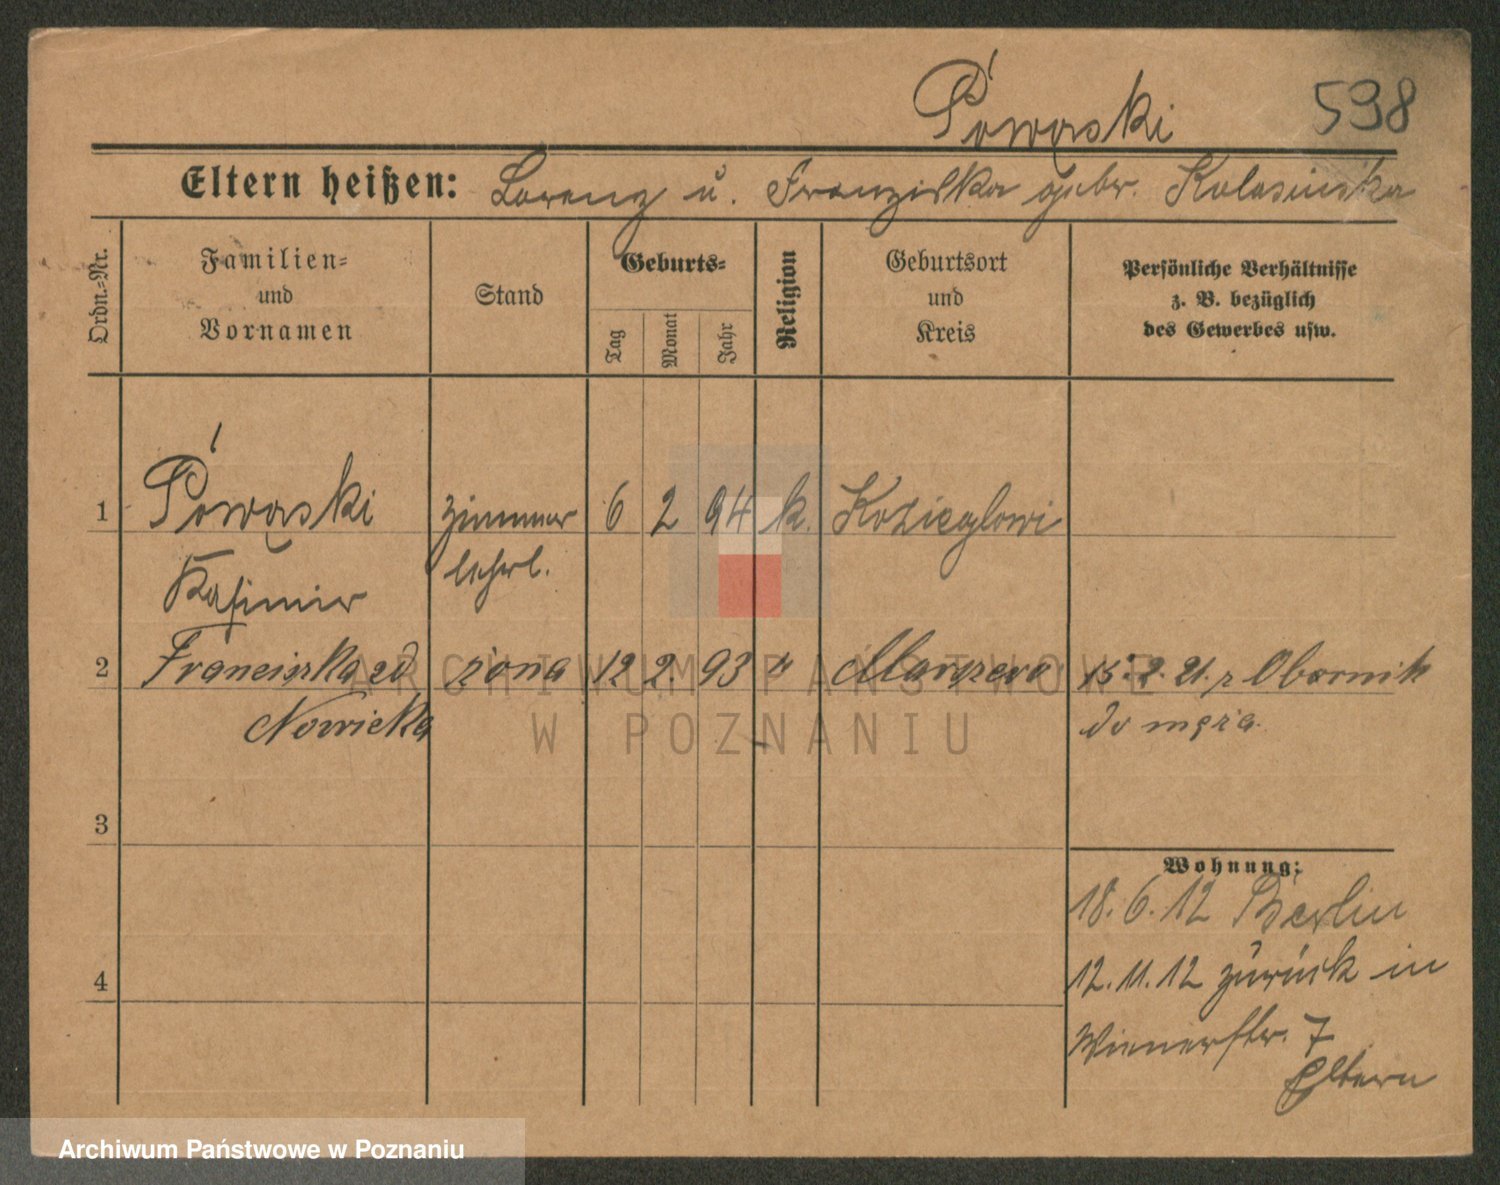 Pówąski 598
Eltern heißen: Lorenz u. Franziska gebr. Kolasinska
Ordn.-Nr.
Familien-
und
Vornamen
Stand
Geburts-
Tag
Monat
Jahr
Religion
Geburtsort
und
Kreis
Persönliche Verhältnisse
z. B. bezüglich
des Gewerbes usw.
1 Pówąski zimmer 6 2 94 k. Kozieglowi
Kasimir lehrl.
2 Franciszka zd żona 12 2. 93 " 15.2.21. z Obornik
Nowicka do męża.
3
4
Wohnung:
18.6.12 Berlin
12.11.12 zurück in
Wienerstr. 7
Eltern
ARCHIWUM PAŃSTWOWE
W POZNANIU
Archiwum Państwowe w Poznaniu